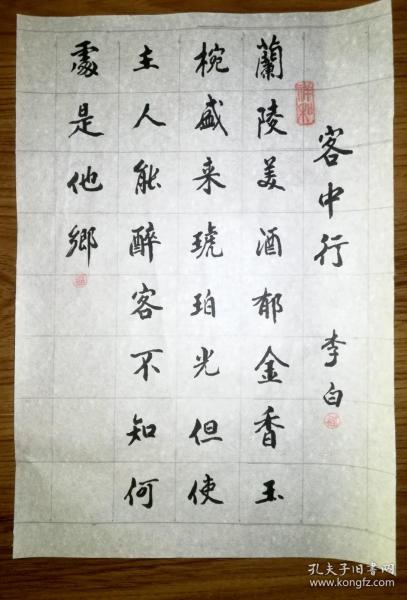 客中行 李白
蘭陵美酒郁金香玉
椀盛来琥珀光但使
主人能醉客不知何
處是他鄉
孔夫子旧书网
www.kongfz.com